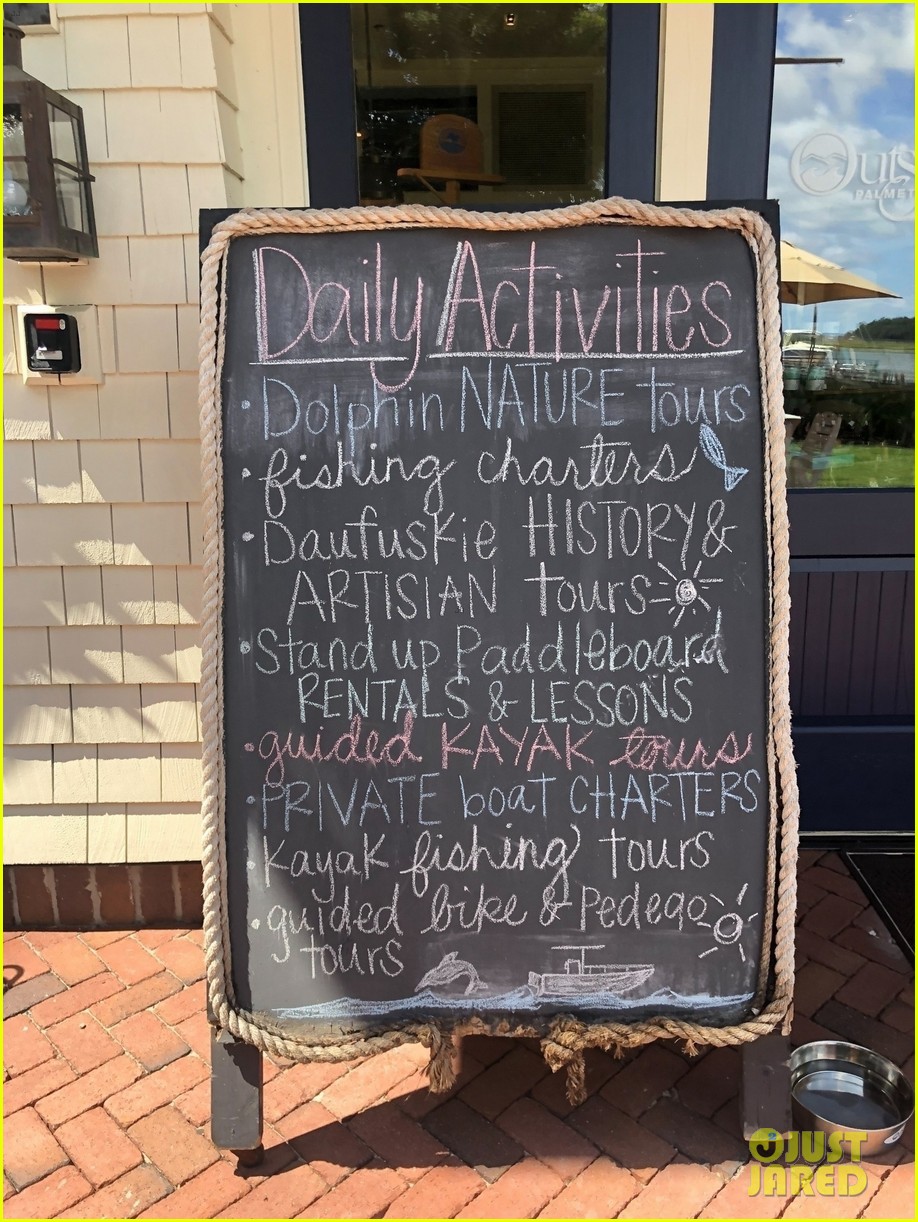 Daily Activities
• Dolphin NATURE tours
• fishing charters
• Daufuskie HISTORY &
ARTISIAN tours
• Stand up Paddleboard
RENTALS & LESSONS
• guided KAYAK tours
• PRIVATE boat CHARTERS
• Kayak fishing tours
• guided bike & Pedego
tours
JUST
JARED